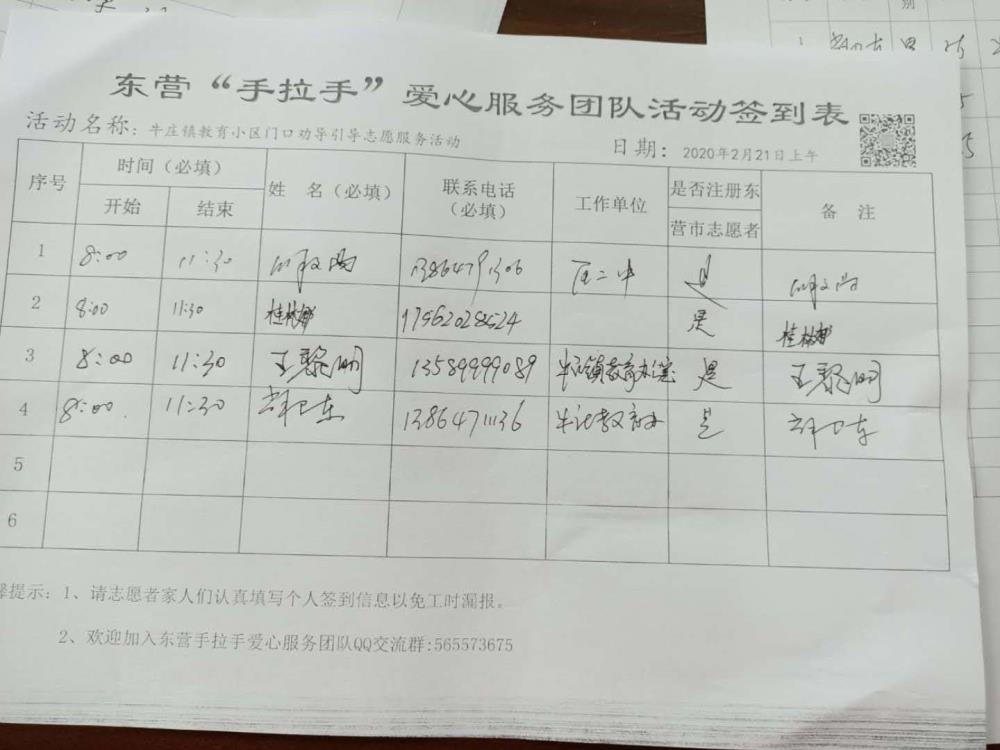 东营“手拉手”爱心服务团队活动签到表
活动名称：牛庄镇教育小区门口劝导引导志愿服务活动
日期： 2020年2月21日上午
序号 时间（必填） 姓 名（必填） 联系电话（必填） 工作单位 是否注册东营市志愿者 备 注
开始 结束
1 8:00 11:30 13864791306 二中 是
2 8:00 11:30 桂林 17962028524 是 桂林
3 8:00 11:30 王黎明 13589999089 牛庄镇教育办 是 王黎明
4 8:00 11:30 卫东 13864711136 牛庄教育办 是 卫东
5
6
提示：1、请志愿者家人们认真填写个人签到信息以免工时漏报。
2、欢迎加入东营手拉手爱心服务团队QQ交流群:565573675